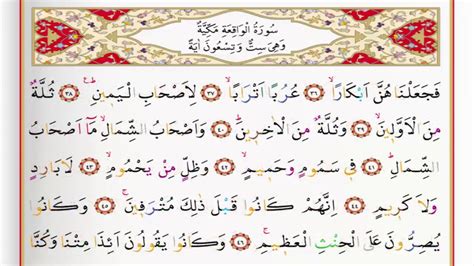 سُورَةُ الْوَاقِعَةِ مَكِّيَّةٌ
وَهِيَ سِتٌّ وَتِسْعُونَ اٰيَةً
فَجَعَلْنَا هُنَّ اَبْكَارًاۙ ﴿٣٦﴾ عُرُبًا اَتْرَابًاۙ ﴿٣٧﴾ لِاَصْحَابِ الْيَم۪ينِۜ ﴿٣٨﴾ ثُلَّةٌ
مِنَ الْاَوَّل۪ينَۙ ﴿٣٩﴾ وَثُلَّةٌ مِنَ الْاٰخِر۪ينَۜ ﴿٤٠﴾ وَاَصْحَابُ الشِّمَالِۙ مَٓا اَصْحَابُ
الشِّمَالِۜ ﴿٤١﴾ ف۪ي سَمُومٍ وَحَم۪يمٍۙ ﴿٤٢﴾ وَظِلٍّ مِنْ يَحْمُومٍۙ ﴿٤٣﴾ لَا بَارِدٍ
وَلَا كَر۪يمٍ ﴿٤٤﴾ اِنَّهُمْ كَانُوا قَبْلَ ذٰلِكَ مُتْرَف۪ينَۚ ﴿٤٥﴾ وَكَانُوا
يُصِرُّونَ عَلَى الْحِنْثِ الْعَظ۪يمِۚ ﴿٤٦﴾ وَكَانُوا يَقُولُونَ اَئِذَا مِتْنَا وَكُنَّا